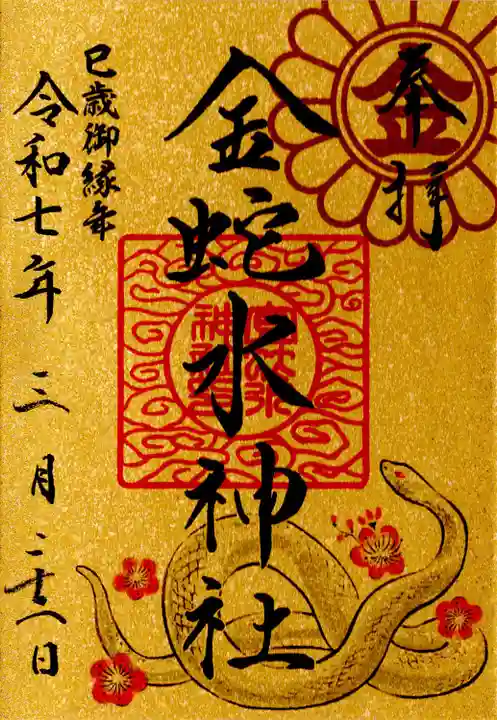 金
奉拝
金蛇水神社
巳歳御縁年
令和七年三月日